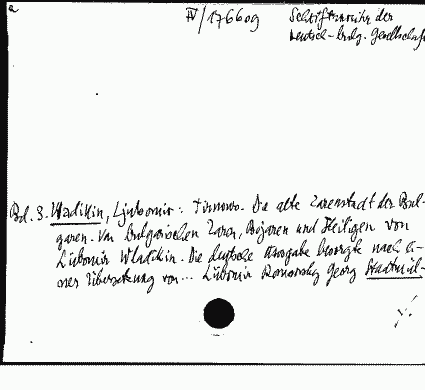 IV/176609
Schriftenreihe der
Deutsch-bulg. Gesellschaft
Bd. 3. Wladikin, Ljubomir: Tirnowo. Die alte Zarenstadt der Bul-
garen. Von bulgarischen Zaren, Bojaren und Heiligen von
Ljubomir Wladikin. Die deutsche Ausgabe besorgte nach ei-
ner Übersetzung von... Ljubomir Romansky Georg Stadtmül-